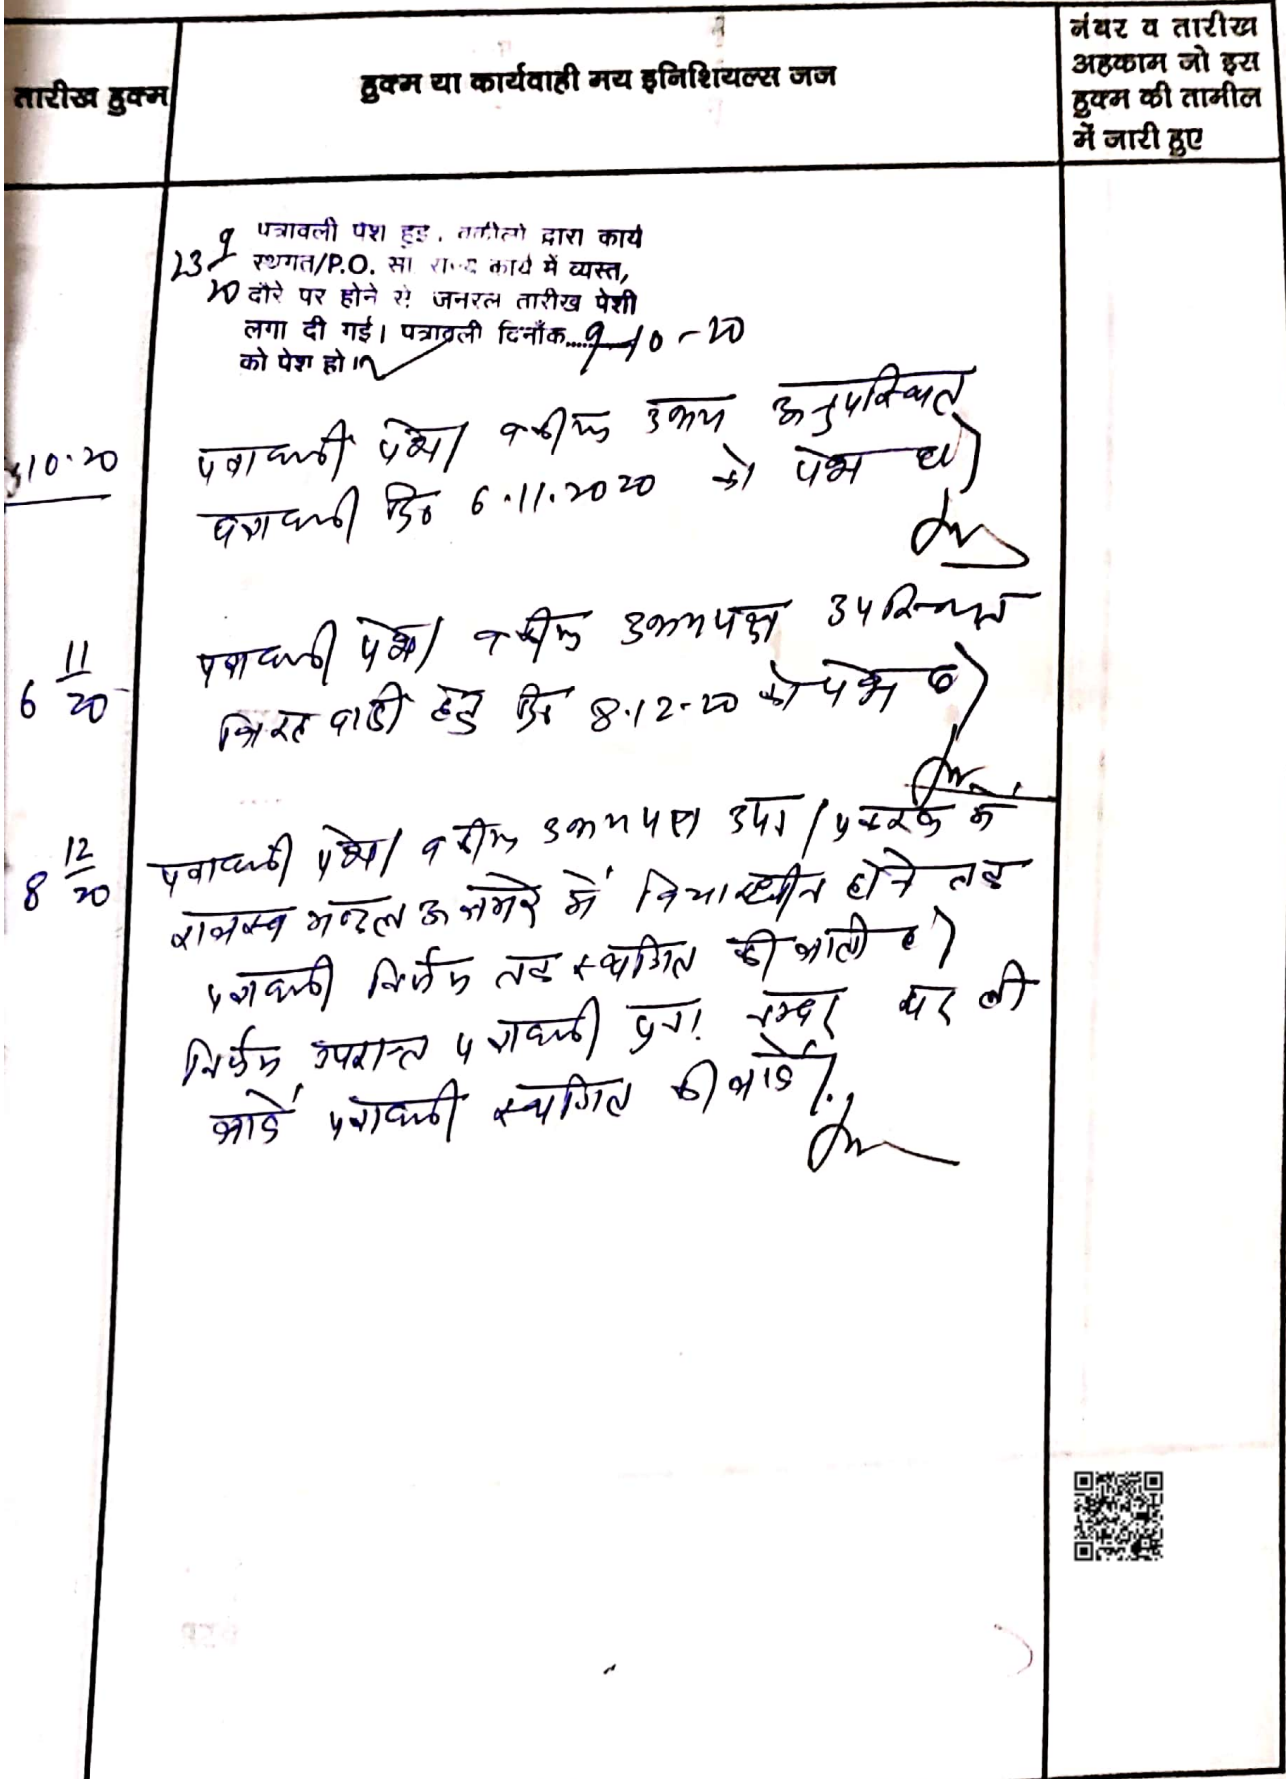 तारीख हुक्म
हुक्म या कार्यवाही मय इनिशियल्स जज
नंबर व तारीख
अहकाम जो इस
हुक्म की तामील
में जारी हुए
23 9/20
पत्रावली पेश हुइ. वकीलो द्वारा कार्य
स्थगत/P.O. सा राज्द कार्य में व्यस्त,
दौरे पर होने से जनरल तारीख पेशी
लगा दी गई। पत्रावली दिनाँक.....9-10-20
को पेश हो।
10.20
पत्रावली पेश। वकील उभय अनुपस्थित
पत्रावली दि० 6.11.2020 को पेश हो।
6 11/20
पत्रावली पेश। वकील उभयपक्ष उपस्थित
जिरह वादी हेतु दि० 8.12.20 को पेश हो।
8 12/20
पत्रावली पेश। वकील उभयपक्ष उप०। प्रकरण के
राजस्व मण्डल अजमेर में विचाराधीन होने तक
पत्रावली निर्णय तक स्थगित की जाती है।
निर्णय उपरान्त पत्रावली पुनः नम्बर पर ली
जावें पत्रावली स्थगित की जावे।